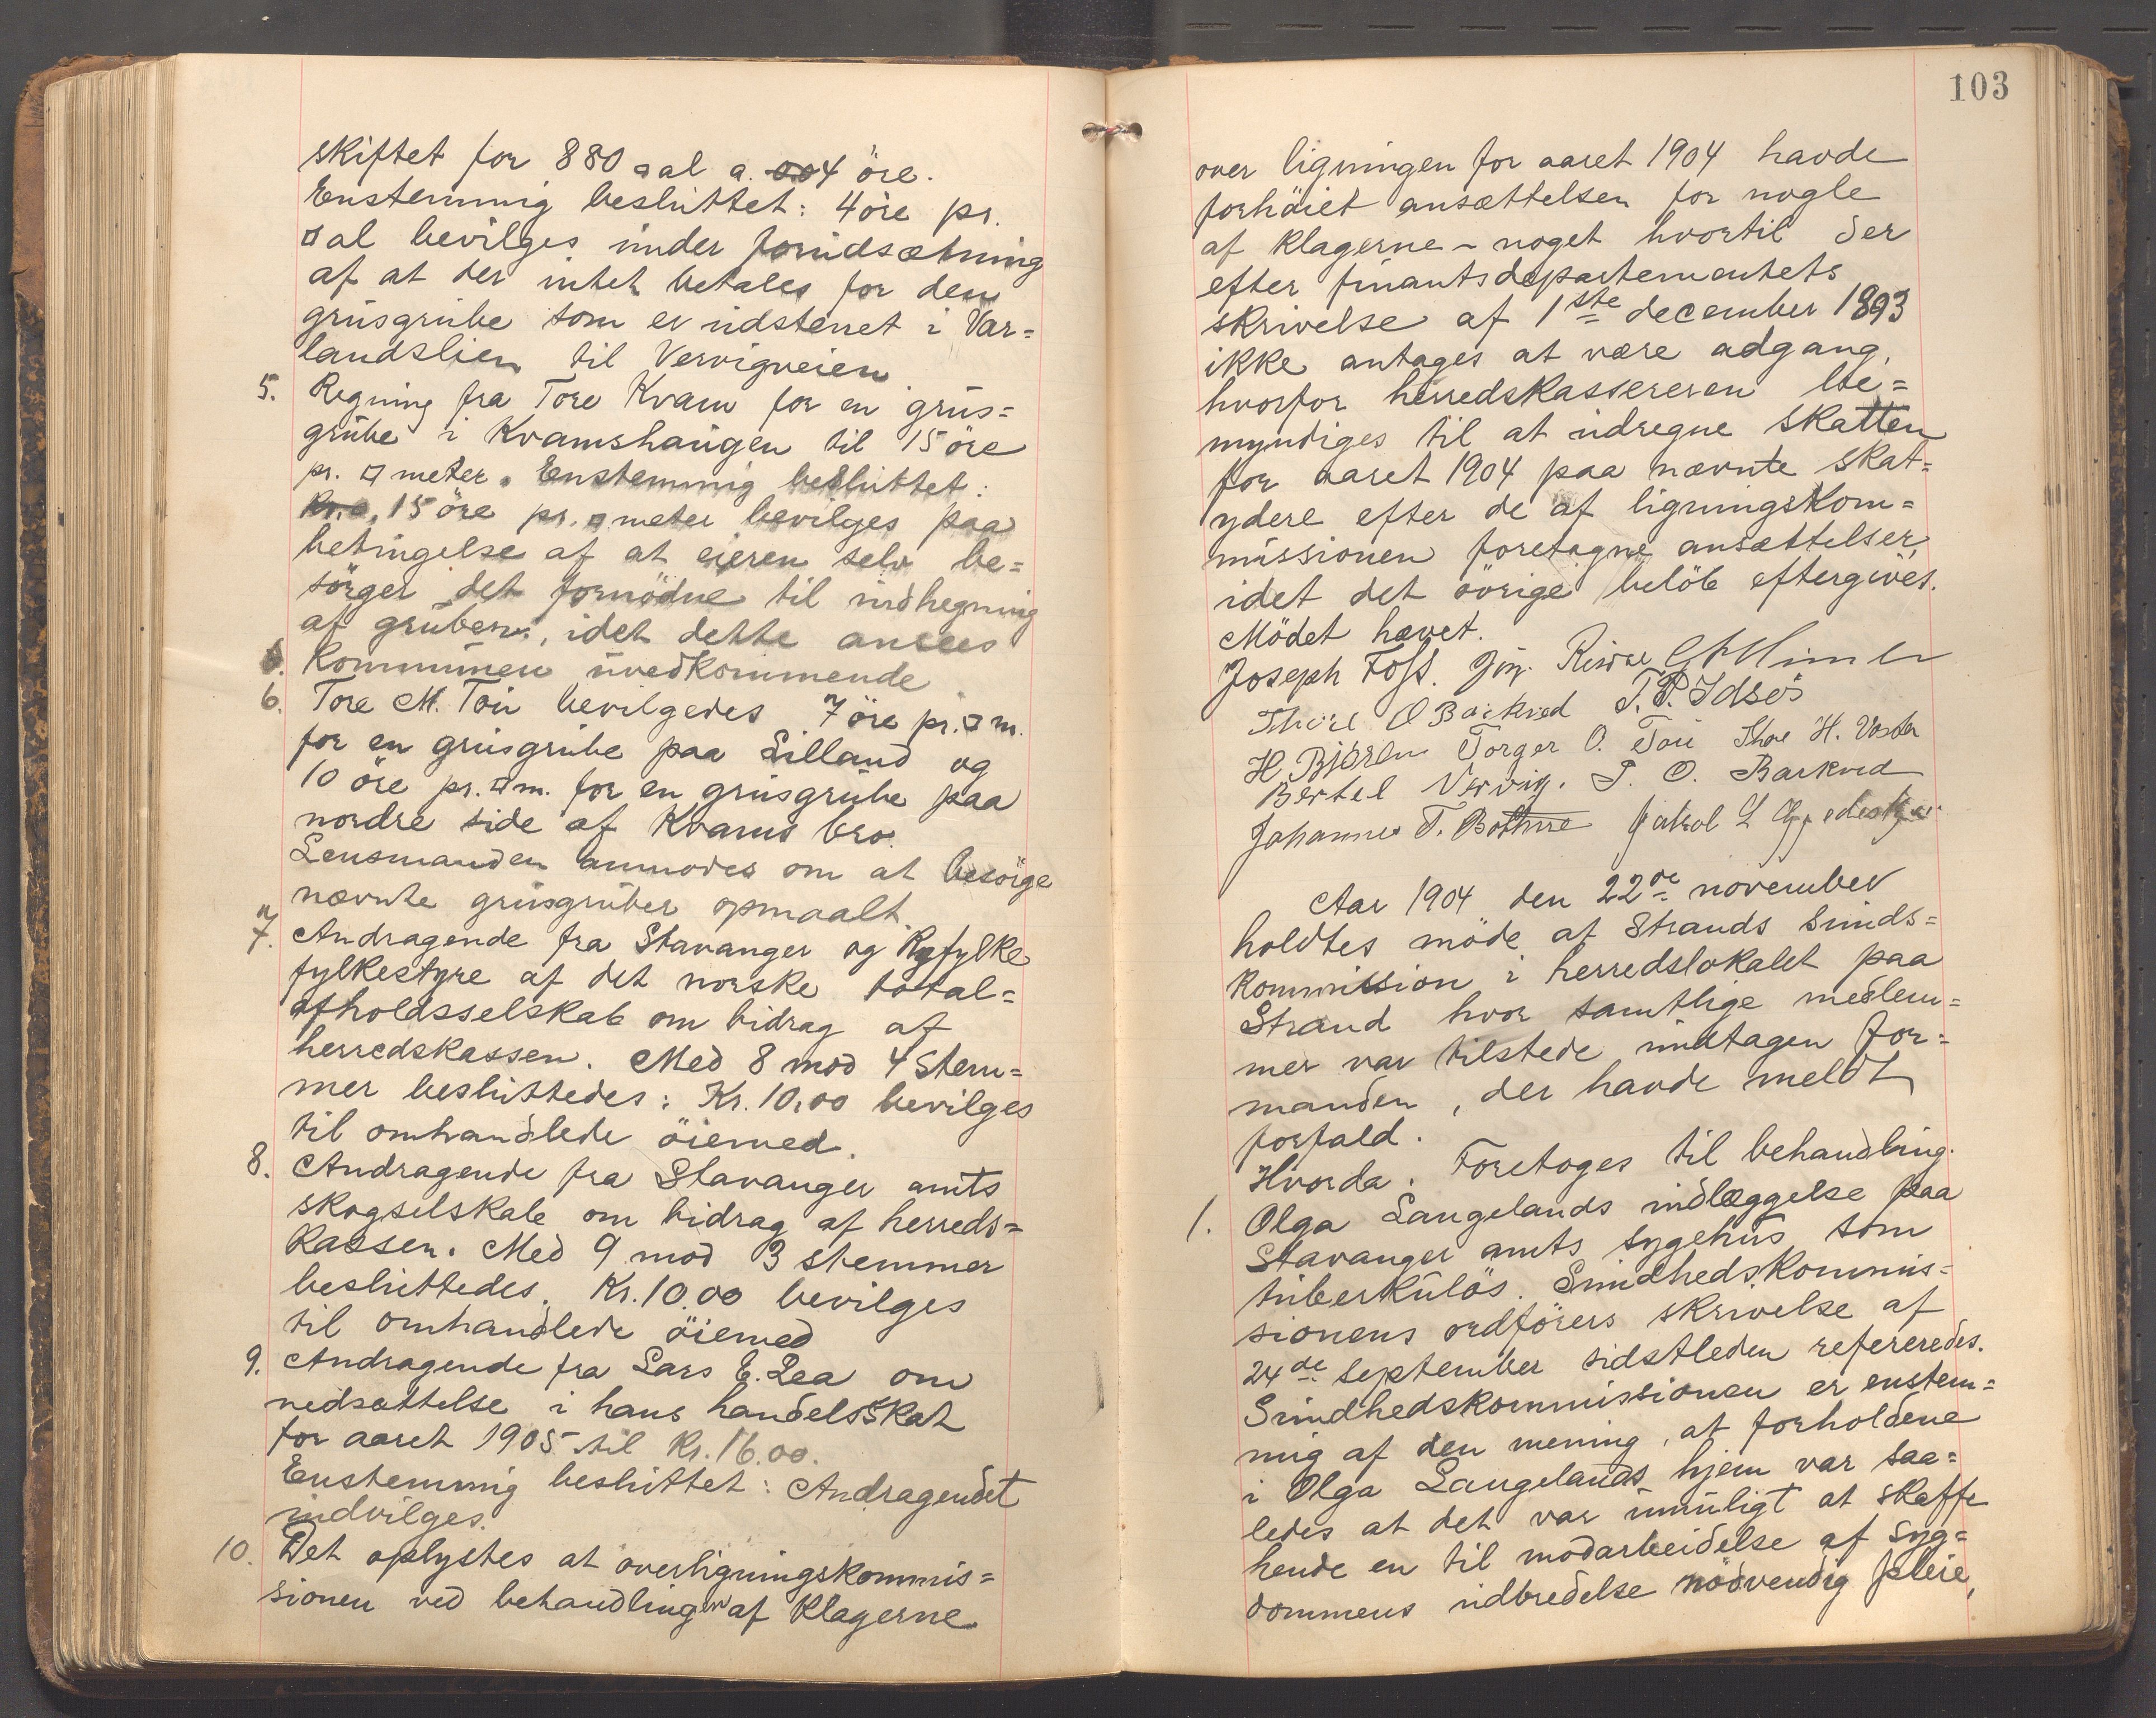 skiftet for 880 □al a. 4 öre.
Enstemmig besluttet: 4 öre pr.
□al bevilges under forudsætning
af at der intet betales for den
grusgrube som er udstenet i Var=
landslien til Vervigveien.
5. Regning fra Tore Kvam for en grus=
grube i Kvamshaugen til 15 öre
pr. □ meter. Enstemmig besluttet:
15 öre pr. □ meter bevilges paa
betingelse af at eieren selv be=
sörger det fornödne til indhegning
af gruben, idet dette ansees
kommunen uvedkommende.
6. Tore M. Tou bevilgedes 7 öre pr. □ m.
for en grusgrube paa Lilland og
10 öre pr. □ m. for en grusgrube paa
nordre side af Kvams bro.
Lensmanden anmodes om at besörge
nævnte grusgruber opmaalt.
7. Andragende fra Stavanger og Ryfylke
fylkestyre af det norske total=
afholdsselskab om bidrag af
herredskassen. Med 8 mod 4 stem=
mer besluttedes: Kr. 10,00 bevilges
til omhandlede öiemed.
8. Andragende fra Stavanger amts
skogselskab om bidrag af herreds=
kassen. Med 9 mod 3 stemmer
besluttedes. Kr. 10.00 bevilges
til omhandlede öiemed
9. Andragende fra Lars E. Lea om
nedsættelse i hans handelsskat
for aaret 1905 til Kr. 16.00.
Enstemmig besluttet: Andragendet
indvilges.
10. Det oplystes at overligningskommis=
sionen ved behandlingen af klagerne
103
over ligningen for aaret 1904 havde
forhöiet ansættelsen for nogle
af klagerne - noget hvortil der
efter finantsdepartementets
skrivelse af 1ste december 1893
ikke antages at være adgang,
hvorfor herredskassereren be=
myndiges til at udregne skatten
for aaret 1904 paa nævnte skat=
ydere efter de af ligningskom=
missionen foretagne ansættelser,
idet det övrige belöb eftergives.
Mödet hævet.
Joseph Foss.
Thore O Barkved T. P. Idsøs
H. Bjøren Torger O. Tou Thore H.
Bertel Vervig. T. O. Barkved
Johannes T. Bothne Jakob L
Aar 1904 den 22de november
holdtes möde af Strands sunds=
kommission i herredslokalet paa
Strand hvor samtlige medlem=
mer var tilstede undtagen for=
manden, der havde meldt
forfald.
Hvorda. Foretoges til behandling.
1. Olga Langelands indlæggelse paa
Stavanger amts sygehus som
tuberkulös. Sundhedskommis=
sionens ordförers skrivelse af
24de september sidstleden refereredes.
Sundhedskommissionen er enstem=
mig af den mening, at forholdene
i Olga Langelands hjem var saa=
ledes at det var umuligt at skaffe
hende en til modarbeidelse af syg=
dommens udbredelse nödvendig pleie,